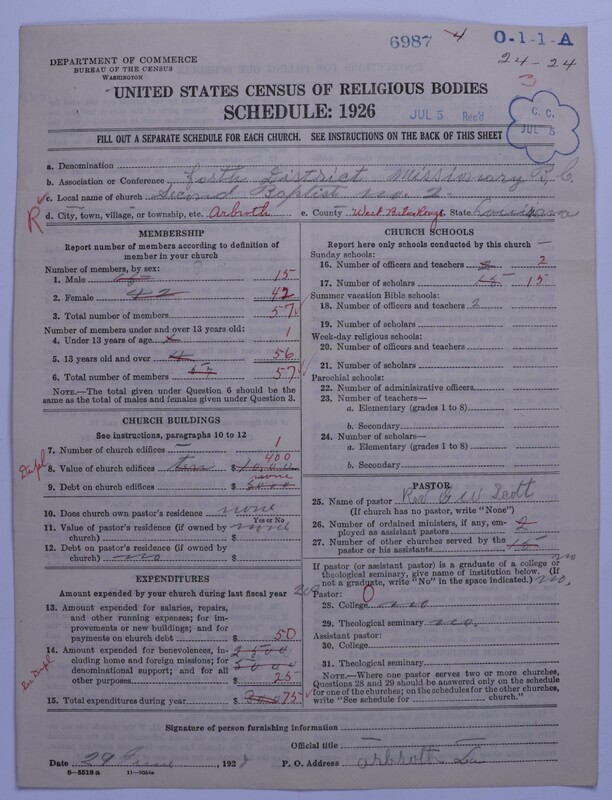 6987 -4 0-1-1-A
24-24
3
DEPARTMENT OF COMMERCE
BUREAU OF THE CENSUS
WASHINGTON
UNITED STATES CENSUS OF RELIGIOUS BODIES
SCHEDULE: 1926
JUL 5 Rec'd
C. C.
JUL 5
FILL OUT A SEPARATE SCHEDULE FOR EACH CHURCH. SEE INSTRUCTIONS ON THE BACK OF THIS SHEET
a. Denomination
b. Association or Conference Forth District Missionary B. C.
c. Local name of church Second Baptist no. 2
R
d. City, town, village, or township, etc. Arbroth e. County West Baton Rouge State Louisiana
MEMBERSHIP
Report number of members according to definition of
member in your church
Number of members, by sex:
1. Male 15 15
2. Female 42 42
3. Total number of members 57
Number of members under and over 13 years old: 1
4. Under 13 years of age
5. 13 years old and over 56
6. Total number of members 57 57
NOTE.—The total given under Question 6 should be the
same as the total of males and females given under Question 3.
CHURCH BUILDINGS
See instructions, paragraphs 10 to 12
7. Number of church edifices 1
8. Value of church edifices $ 400
9. Debt on church edifices $ none
10. Does church own pastor's residence none
Yes or No
11. Value of pastor's residence (if owned by
church) none $
12. Debt on pastor's residence (if owned by
church) no $
EXPENDITURES
Amount expended by your church during last fiscal year
13. Amount expended for salaries, repairs,
and other running expenses; for im-
provements or new buildings; and for
payments on church debt $ 50
14. Amount expended for benevolences, in-
cluding home and foreign missions; for
denominational support; and for all
other purposes $ 25
15. Total expenditures during year $ 75
CHURCH SCHOOLS
Report here only schools conducted by this church —
Sunday schools:
16. Number of officers and teachers 2 2
17. Number of scholars 15 15
Summer vacation Bible schools:
18. Number of officers and teachers 2
19. Number of scholars
Week-day religious schools:
20. Number of officers and teachers
21. Number of scholars
Parochial schools:
22. Number of administrative officers
23. Number of teachers—
a. Elementary (grades 1 to 8)
b. Secondary
24. Number of scholars—
a. Elementary (grades 1 to 8)
b. Secondary
PASTOR
25. Name of pastor Rev G W Scott
(If church has no pastor, write "None")
26. Number of ordained ministers, if any, em-
ployed as assistant pastors 2
27. Number of other churches served by the
pastor or his assistants 15
If pastor (or assistant pastor) is a graduate of a college or no
theological seminary, give name of institution below. (If
not a graduate, write "No" in the space indicated.) no.
Pastor: 0
28. College no
29. Theological seminary no.
Assistant pastor:
30. College
31. Theological seminary
NOTE.—Where one pastor serves two or more churches,
Questions 28 and 29 should be answered only on the schedule
for one of the churches; on the schedules for the other churches,
write "See schedule for church."
Signature of person furnishing information
Official title
Date 29 June, 1927 P. O. Address arbroth La
8—5518 a